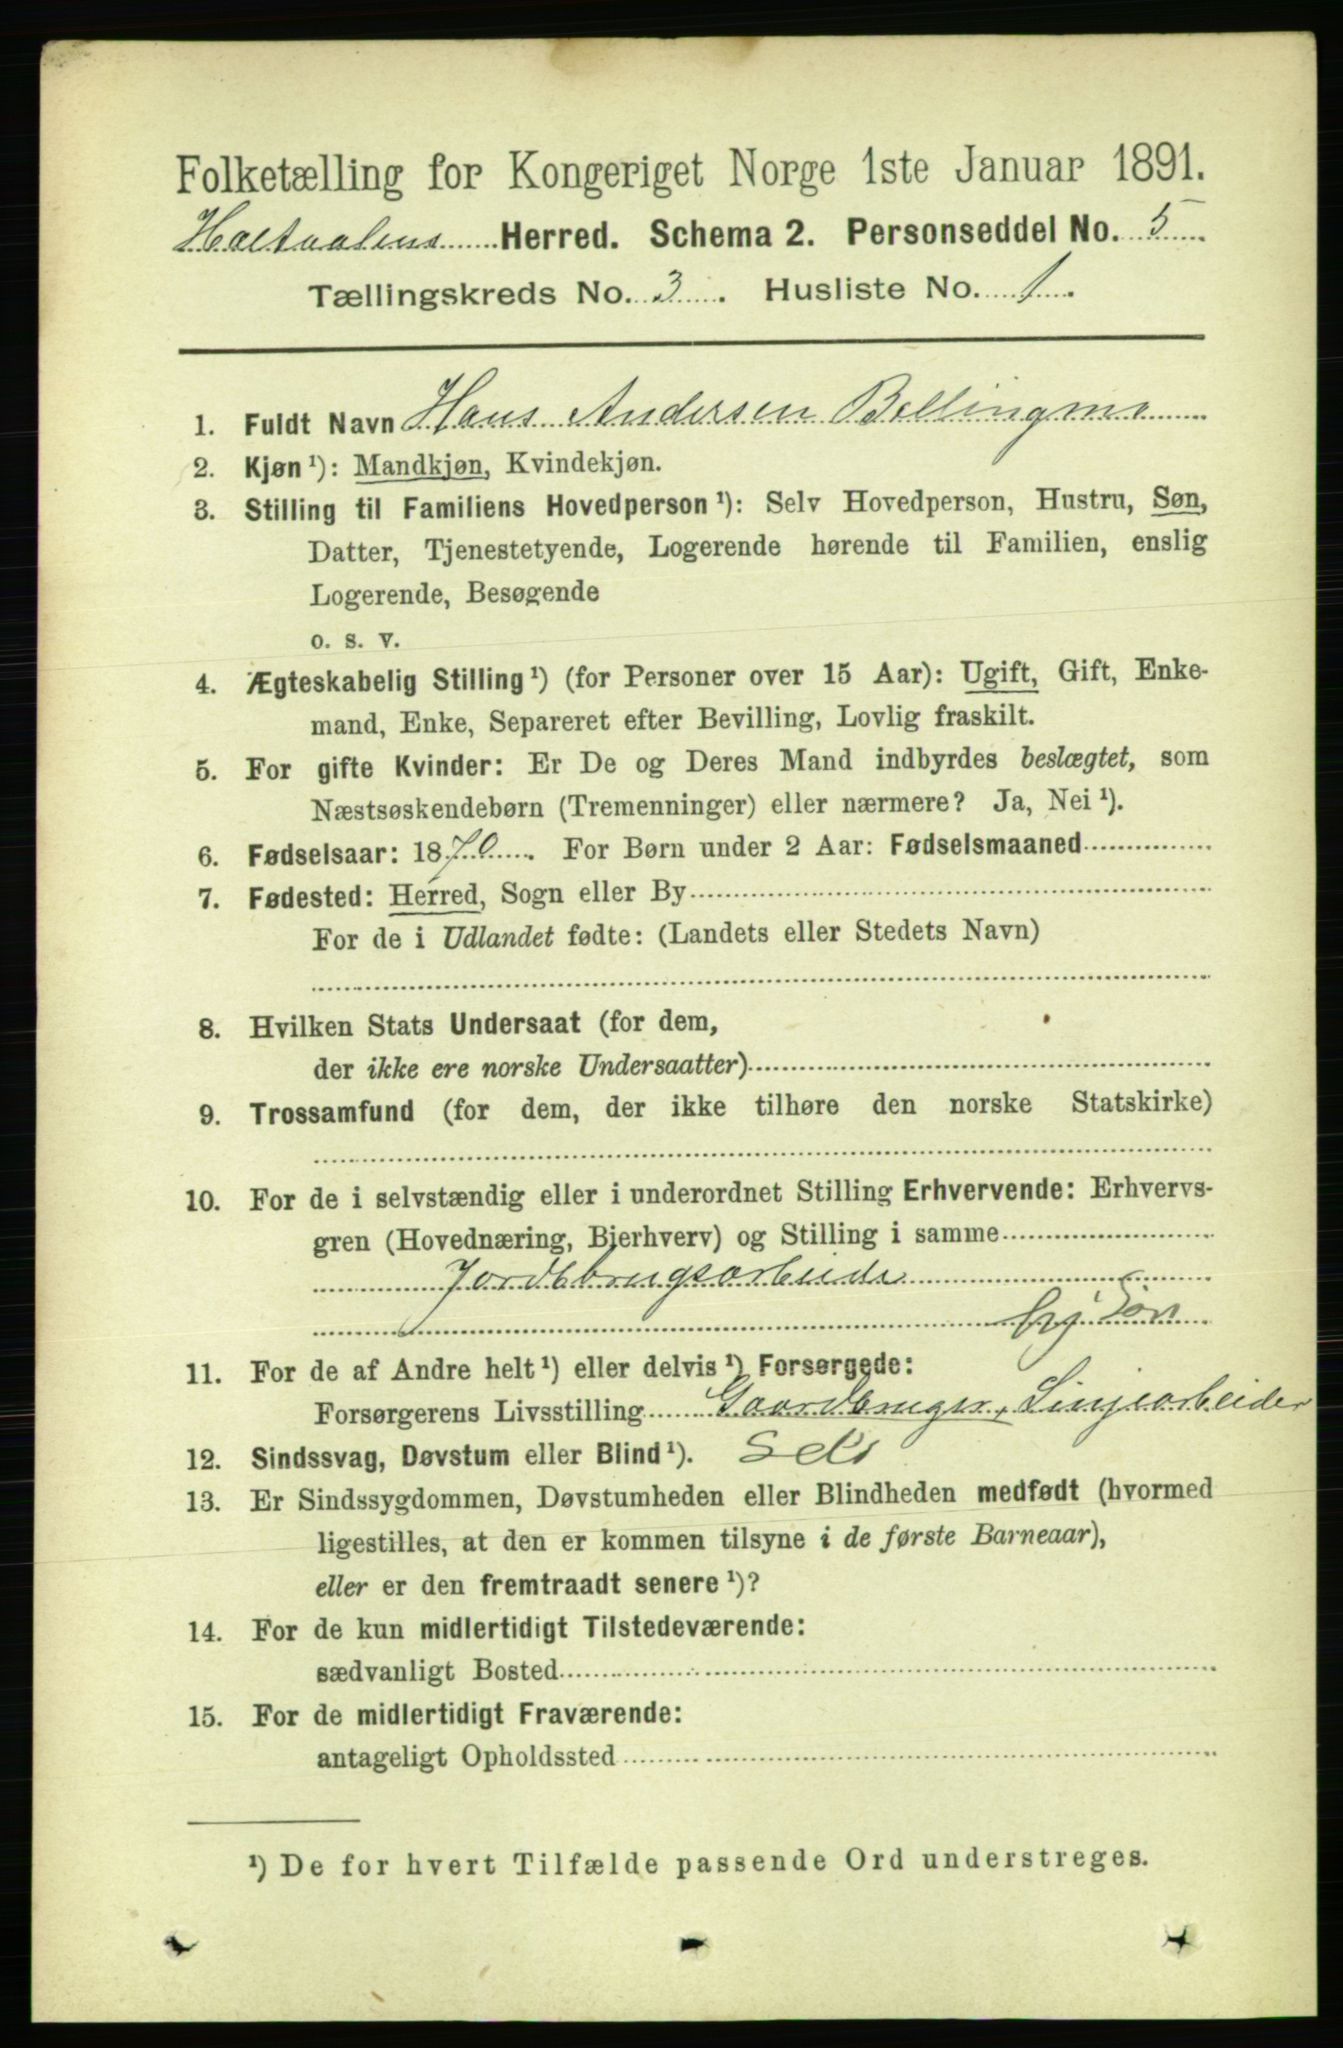 Folketælling for Kongeriget Norge 1ste Januar 1891.
Holtaalens Herred. Schema 2. Personseddel No. 5
Tællingskreds No. 3. Husliste No. 1.
1. Fuldt Navn Hans Andersen Bellingmo
2. Kjøn ¹): Mandkjøn, Kvindekjøn.
3. Stilling til Familiens Hovedperson ¹): Selv Hovedperson, Hustru, Søn,
Datter, Tjenestetyende, Logerende hørende til Familien, enslig
Logerende, Besøgende
o. s. v.
4. Ægteskabelig Stilling ¹) (for Personer over 15 Aar): Ugift, Gift, Enke-
mand, Enke, Separeret efter Bevilling, Lovlig fraskilt.
5. For gifte Kvinder: Er De og Deres Mand indbyrdes beslægtet, som
Næstsøskendebørn (Tremenninger) eller nærmere? Ja, Nei ¹).
6. Fødselsaar: 1870. For Børn under 2 Aar: Fødselsmaaned
7. Fødested: Herred, Sogn eller By
For de i Udlandet fødte: (Landets eller Stedets Navn)
8. Hvilken Stats Undersaat (for dem,
der ikke ere norske Undersaatter)
9. Trossamfund (for dem, der ikke tilhøre den norske Statskirke)
10. For de i selvstændig eller i underordnet Stilling Erhvervende: Erhvervs-
gren (Hovednæring, Bierhverv) og Stilling i samme
Jordbrugsarbeide
Søn
11. For de af Andre helt ¹) eller delvis ¹) Forsørgede:
Forsørgerens Livsstilling Gaardbruger, Linjearbeider
12. Sindssvag, Døvstum eller Blind ¹).
13. Er Sindssygdommen, Døvstumheden eller Blindheden medfødt (hvormed
ligestilles, at den er kommen tilsyne i de første Barneaar),
eller er den fremtraadt senere ¹)?
14. For de kun midlertidigt Tilstedeværende:
sædvanligt Bosted
15. For de midlertidigt Fraværende:
antageligt Opholdssted
¹) De for hvert Tilfælde passende Ord understreges.